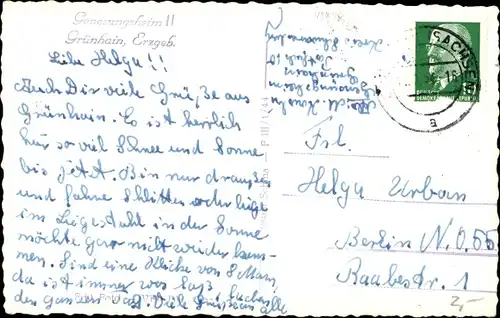 Genesungsheim II
Grünhain, Erzgeb.
Liebe Helga!!
Auch Dir viele Grüße aus
Grünhain. Es ist herrlich
hier so viel Schnee und Sonne
bis jetzt. Bin nur draußen
und fahre Schlitten oder liege
im Liegestuhl in der Sonne
möchte gar nicht wieder heim-
Sind eine Clicke von 8 Mann,
da ist immer was los
den ganzen Tag. Viele Grüße an alle
Genesungsheim
Grünhain
Postfach 10
Kreis Schwarzenberg
SACHSEN
a
Frl.
Helga Urban
Berlin N.O.55
Raabestr. 1
2,-